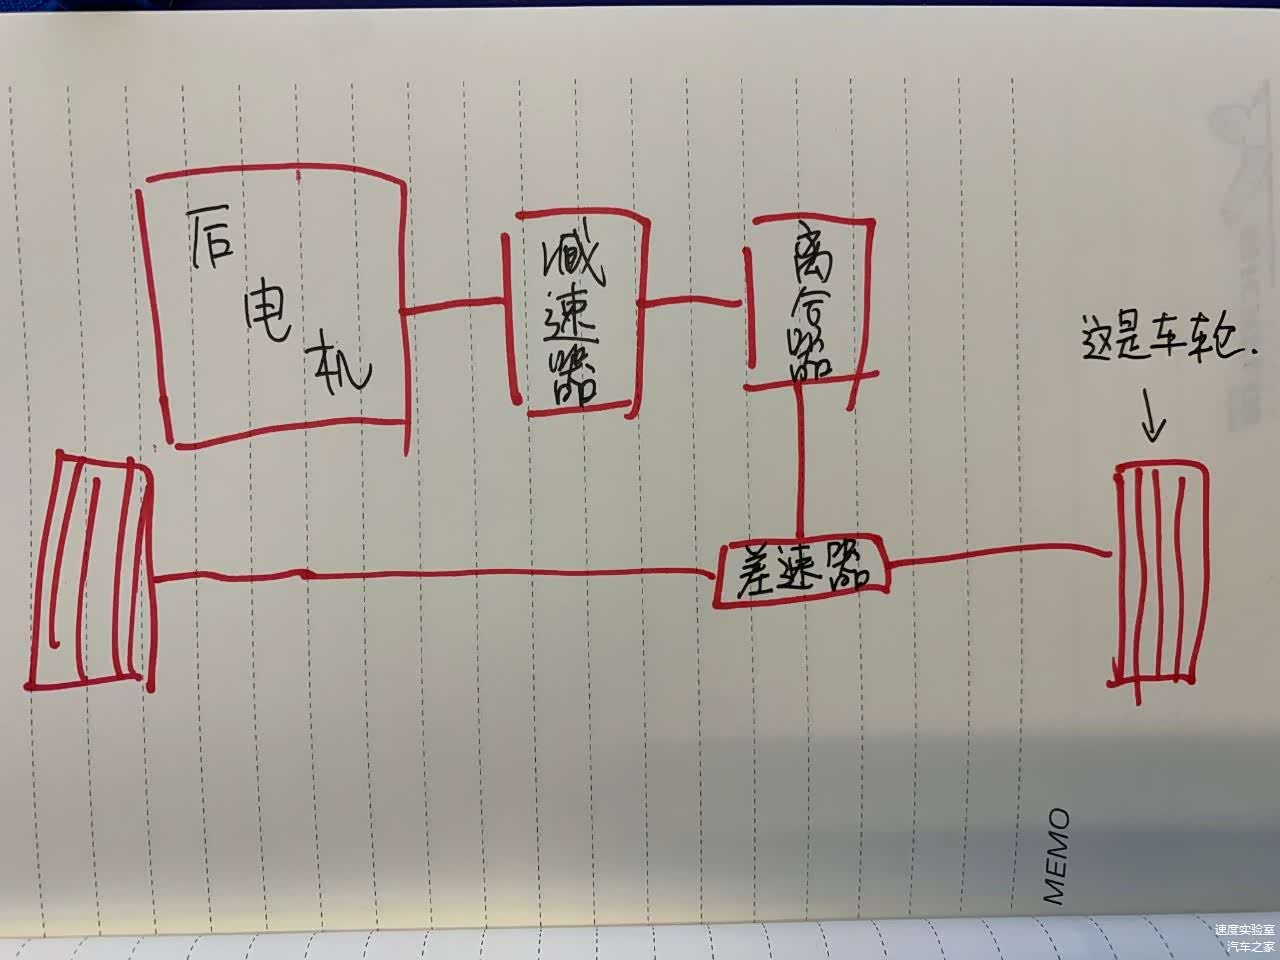 后电机
减速器
离合器
这是车轮.
差速器
MEMO
速度实验室
汽车之家